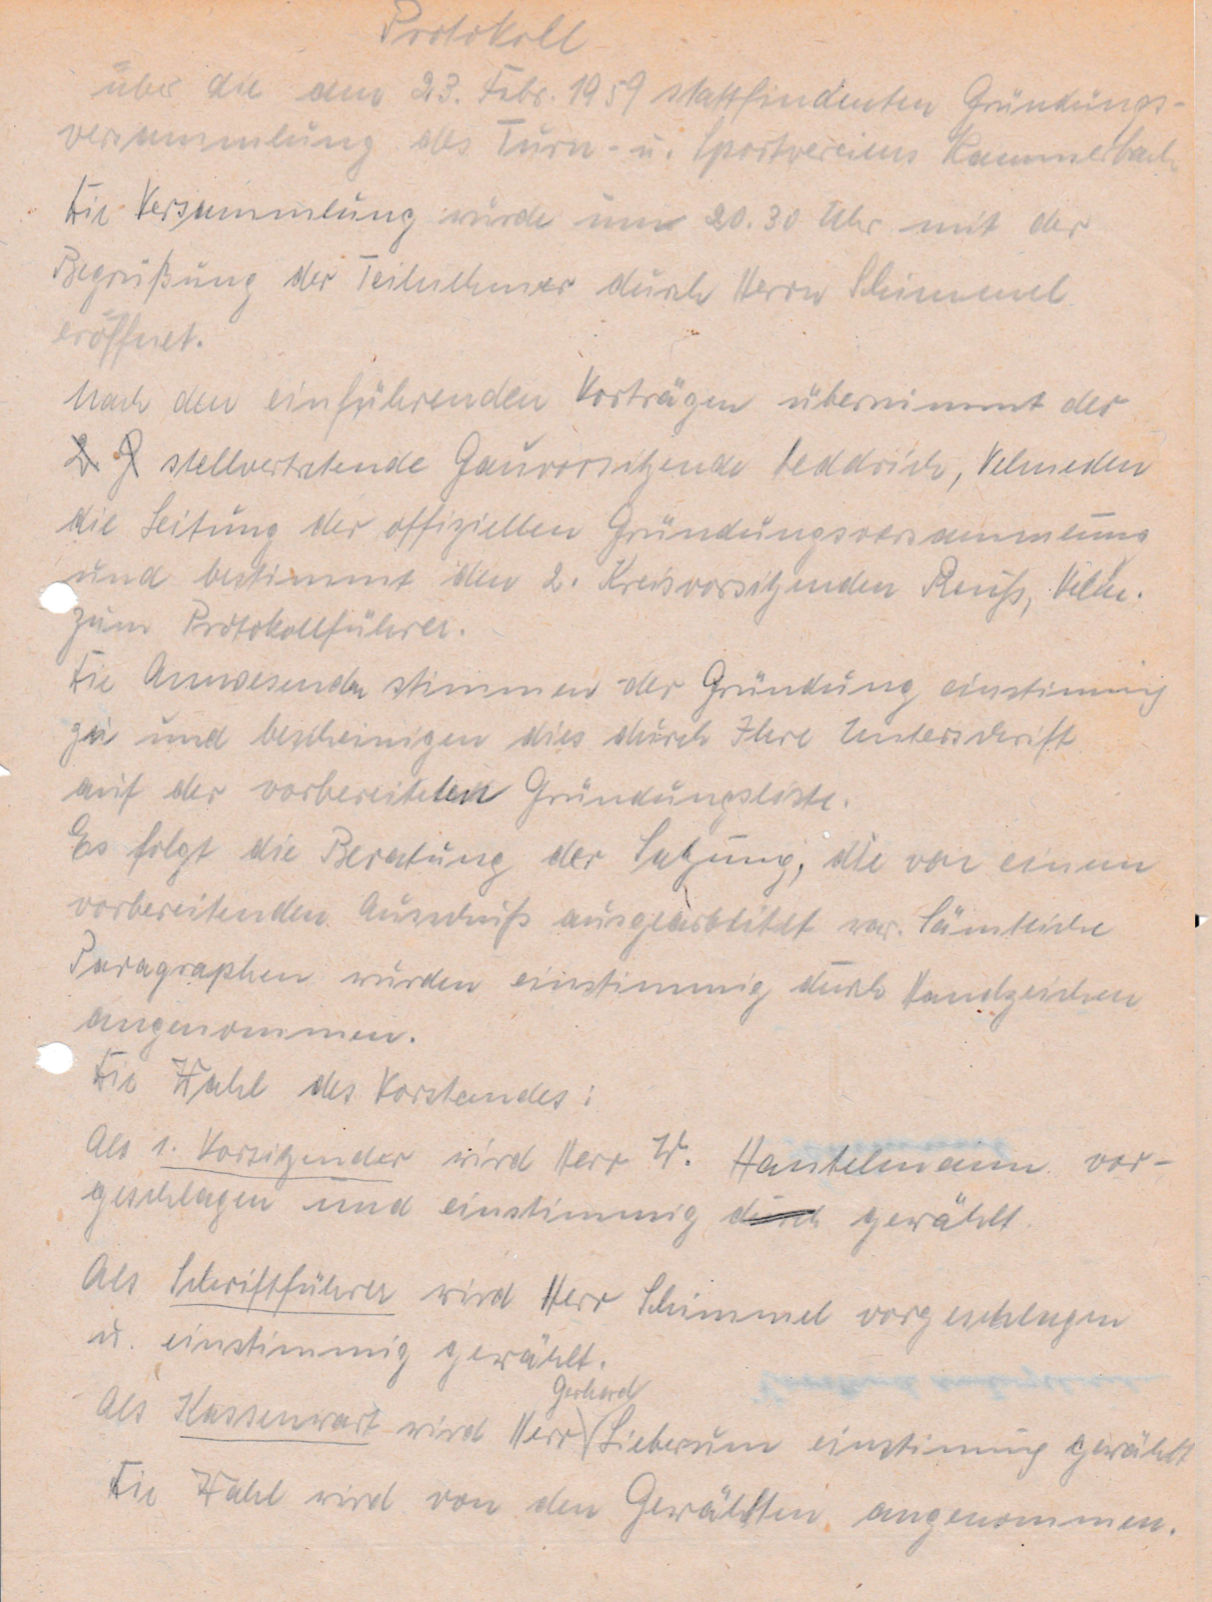 Protokoll
über die am 23. Febr. 1959 stattfindenten Gründungs-
versammlung des Turn- u. Sportvereins Kammerbach
Die Versammlung wurde um 20.30 Uhr mit der
Begrüßung der Teilnehmer durch Herrn Schimmel
eröffnet.
Nach den einführenden Vorträgen übernimmt der
stellvertretende Gauvorsitzende Leddrich, Velmeden
die Leitung der offiziellen Gründungsversammlung
und bestimmt den 2. Kreisvorsitzenden Reuß, Velm.
zum Protokollführer.
Die Anwesenden stimmen der Gründung einstimmig
zu und bescheinigen dies durch Ihre Unterschrift
auf der vorbereiteten Gründungsliste.
Es folgt die Beratung der Satzung, die von einem
vorbereitenden Ausschuß ausgearbeitet war. Sämtliche
Paragraphen wurden einstimmig durch Handzeichen
angenommen.
Die Wahl des Vorstandes:
Als 1. Vorsitzender wird Herr W. Hantelmann vor-
geschlagen und einstimmig durch gewählt.
Als Schriftführer wird Herr Schimmel vorgeschlagen
u. einstimmig gewählt.
Gerhard
Als Kassenwart wird Herr Lieberum einstimmig gewählt
Die Wahl wird von den Gewählten angenommen.